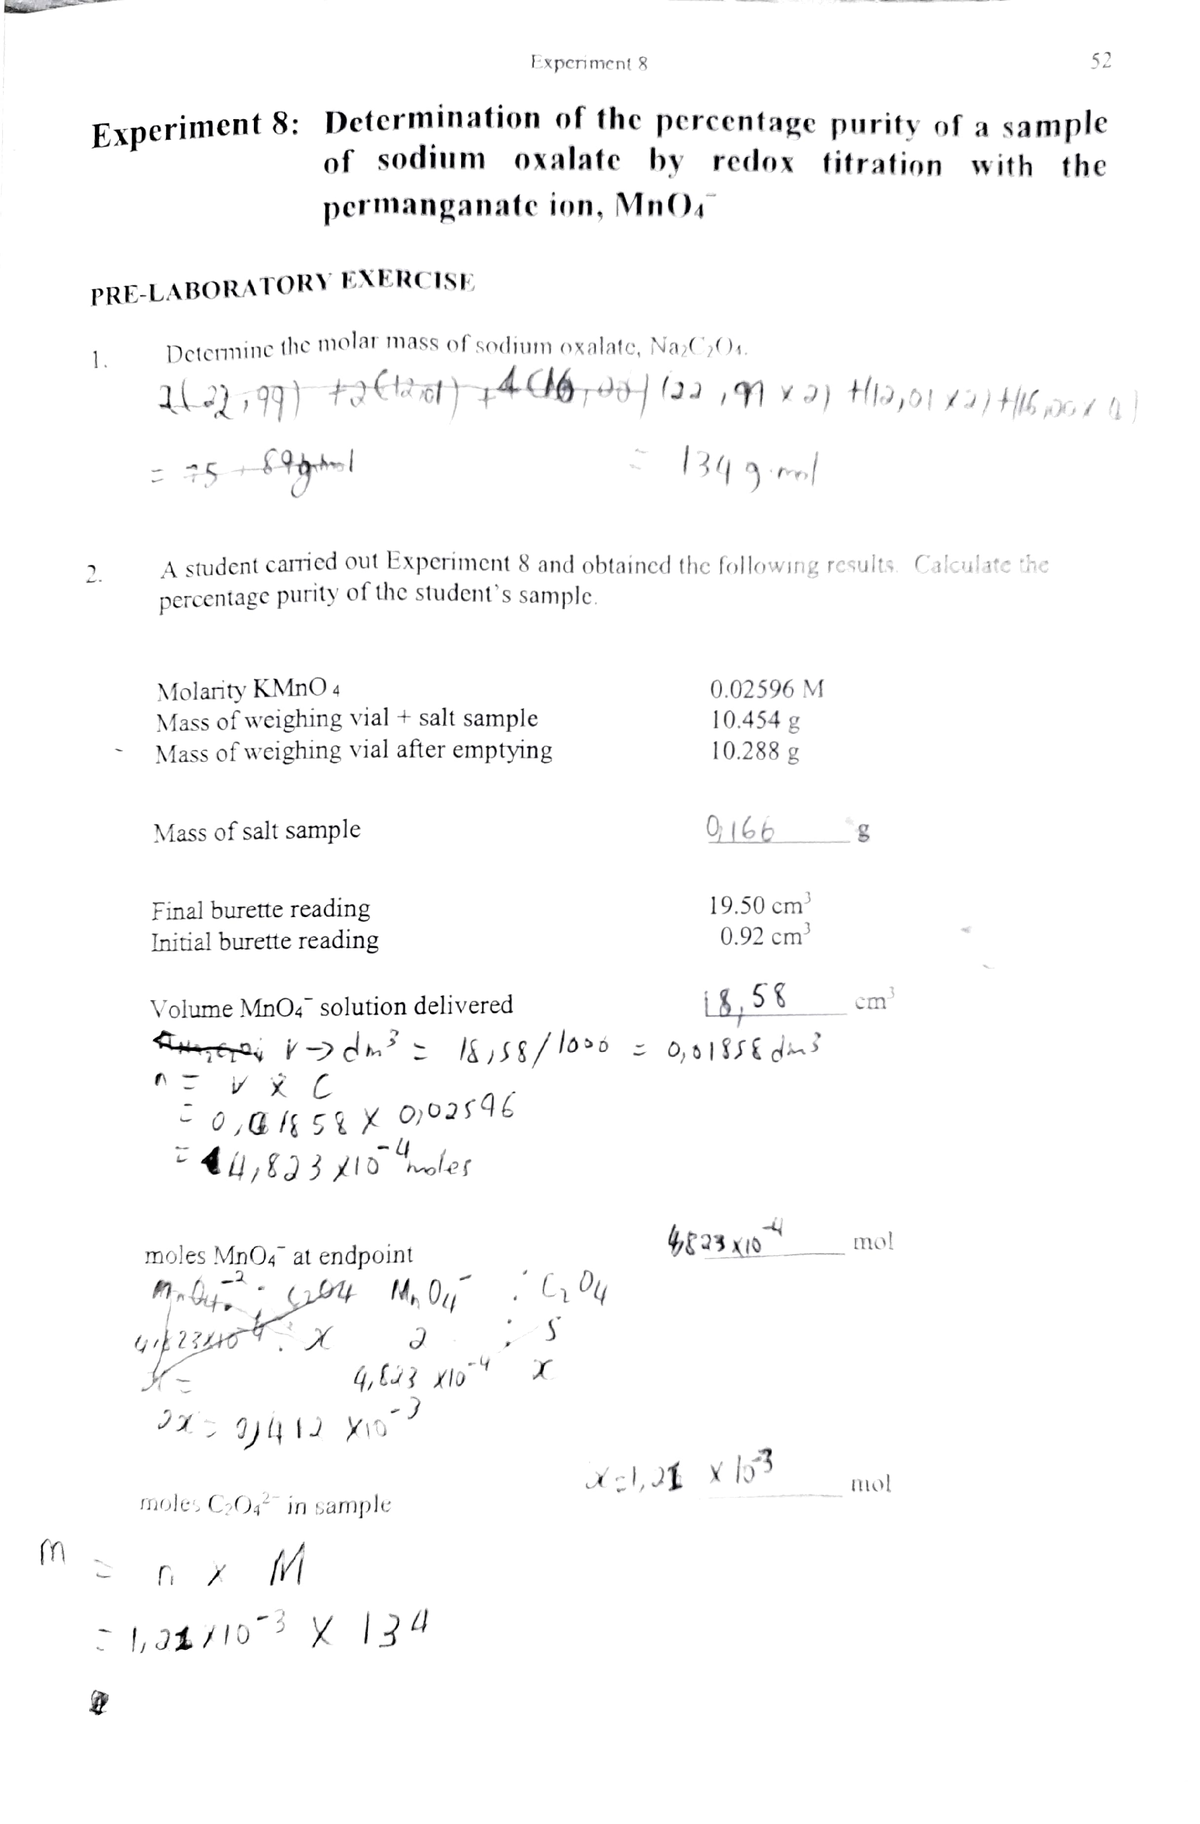 Experiment 8 52
Experiment 8: Determination of the percentage purity of a sample
of sodium oxalate by redox titration with the
permanganate ion, MnO₄⁻
PRE-LABORATORY EXERCISE
1. Determine the molar mass of sodium oxalate, Na₂C₂O₄.
2(22,99) +2(12,01) +4(16,00) (22,99 x 2) +(12,01 x 2) +(16,00 x 4)
= 134 g.mol
2. A student carried out Experiment 8 and obtained the following results. Calculate the
percentage purity of the student's sample.
Molarity KMnO₄ 0.02596 M
Mass of weighing vial + salt sample 10.454 g
Mass of weighing vial after emptying 10.288 g
Mass of salt sample 0,166 g
Final burette reading 19.50 cm³
Initial burette reading 0.92 cm³
Volume MnO₄⁻ solution delivered 18,58 cm³
V → dm³ = 18,58/1000 = 0,01858 dm³
n = V x C
= 0,01858 x 0,02596
= 4,823 x10⁻⁴ moles
moles MnO₄⁻ at endpoint 4,823 x10⁻⁴ mol
MnO₄⁻ : C₂O₄
2 : 5
4,823 x10⁻⁴ x
2x = 2,412 x10⁻³
x=1,21 x 10⁻³ mol
moles C₂O₄²⁻ in sample
m = n x M
= 1,21 x10⁻³ x 134